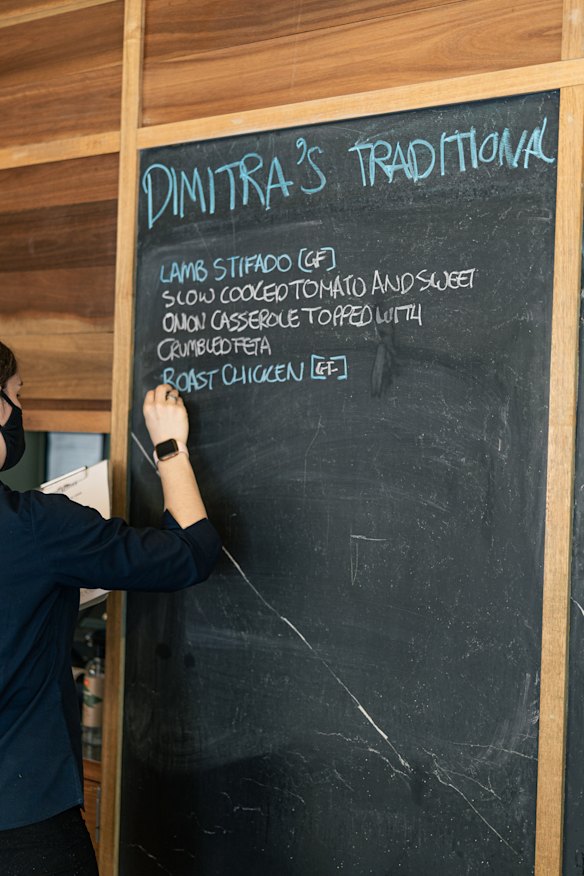 DIMITRA'S TRADITIONAL
LAMB STIFADO [GF]
SLOW COOCED TOMATO AND SWEET
ONION CASSEROLE TOPPED WITH
CRUMBLED FETA
ROAST CHICKEN [GF]